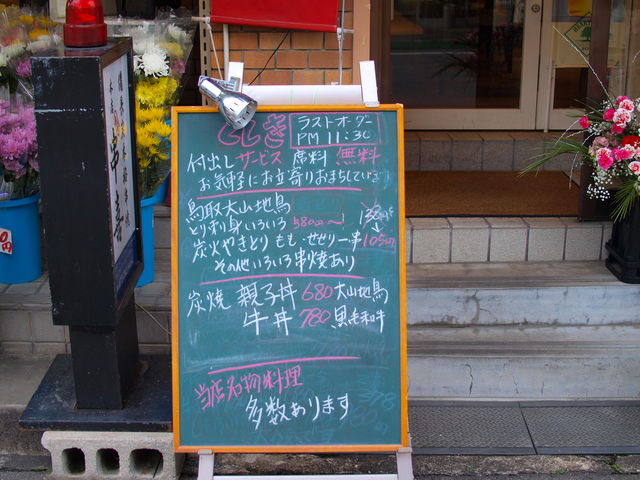 ラストオーダー
PM 11:30
付出しサービス 席料 無料
お気軽にお立寄りおまちしています
鳥取大山地鳥
とり刺身いろいろ 580円〜
炭火やきとり もも・せせり一串105円
その他いろいろ串焼あり
炭焼 親子丼 680 大山地鳥
牛丼 780 黒毛和牛
当店名物料理
多数あります